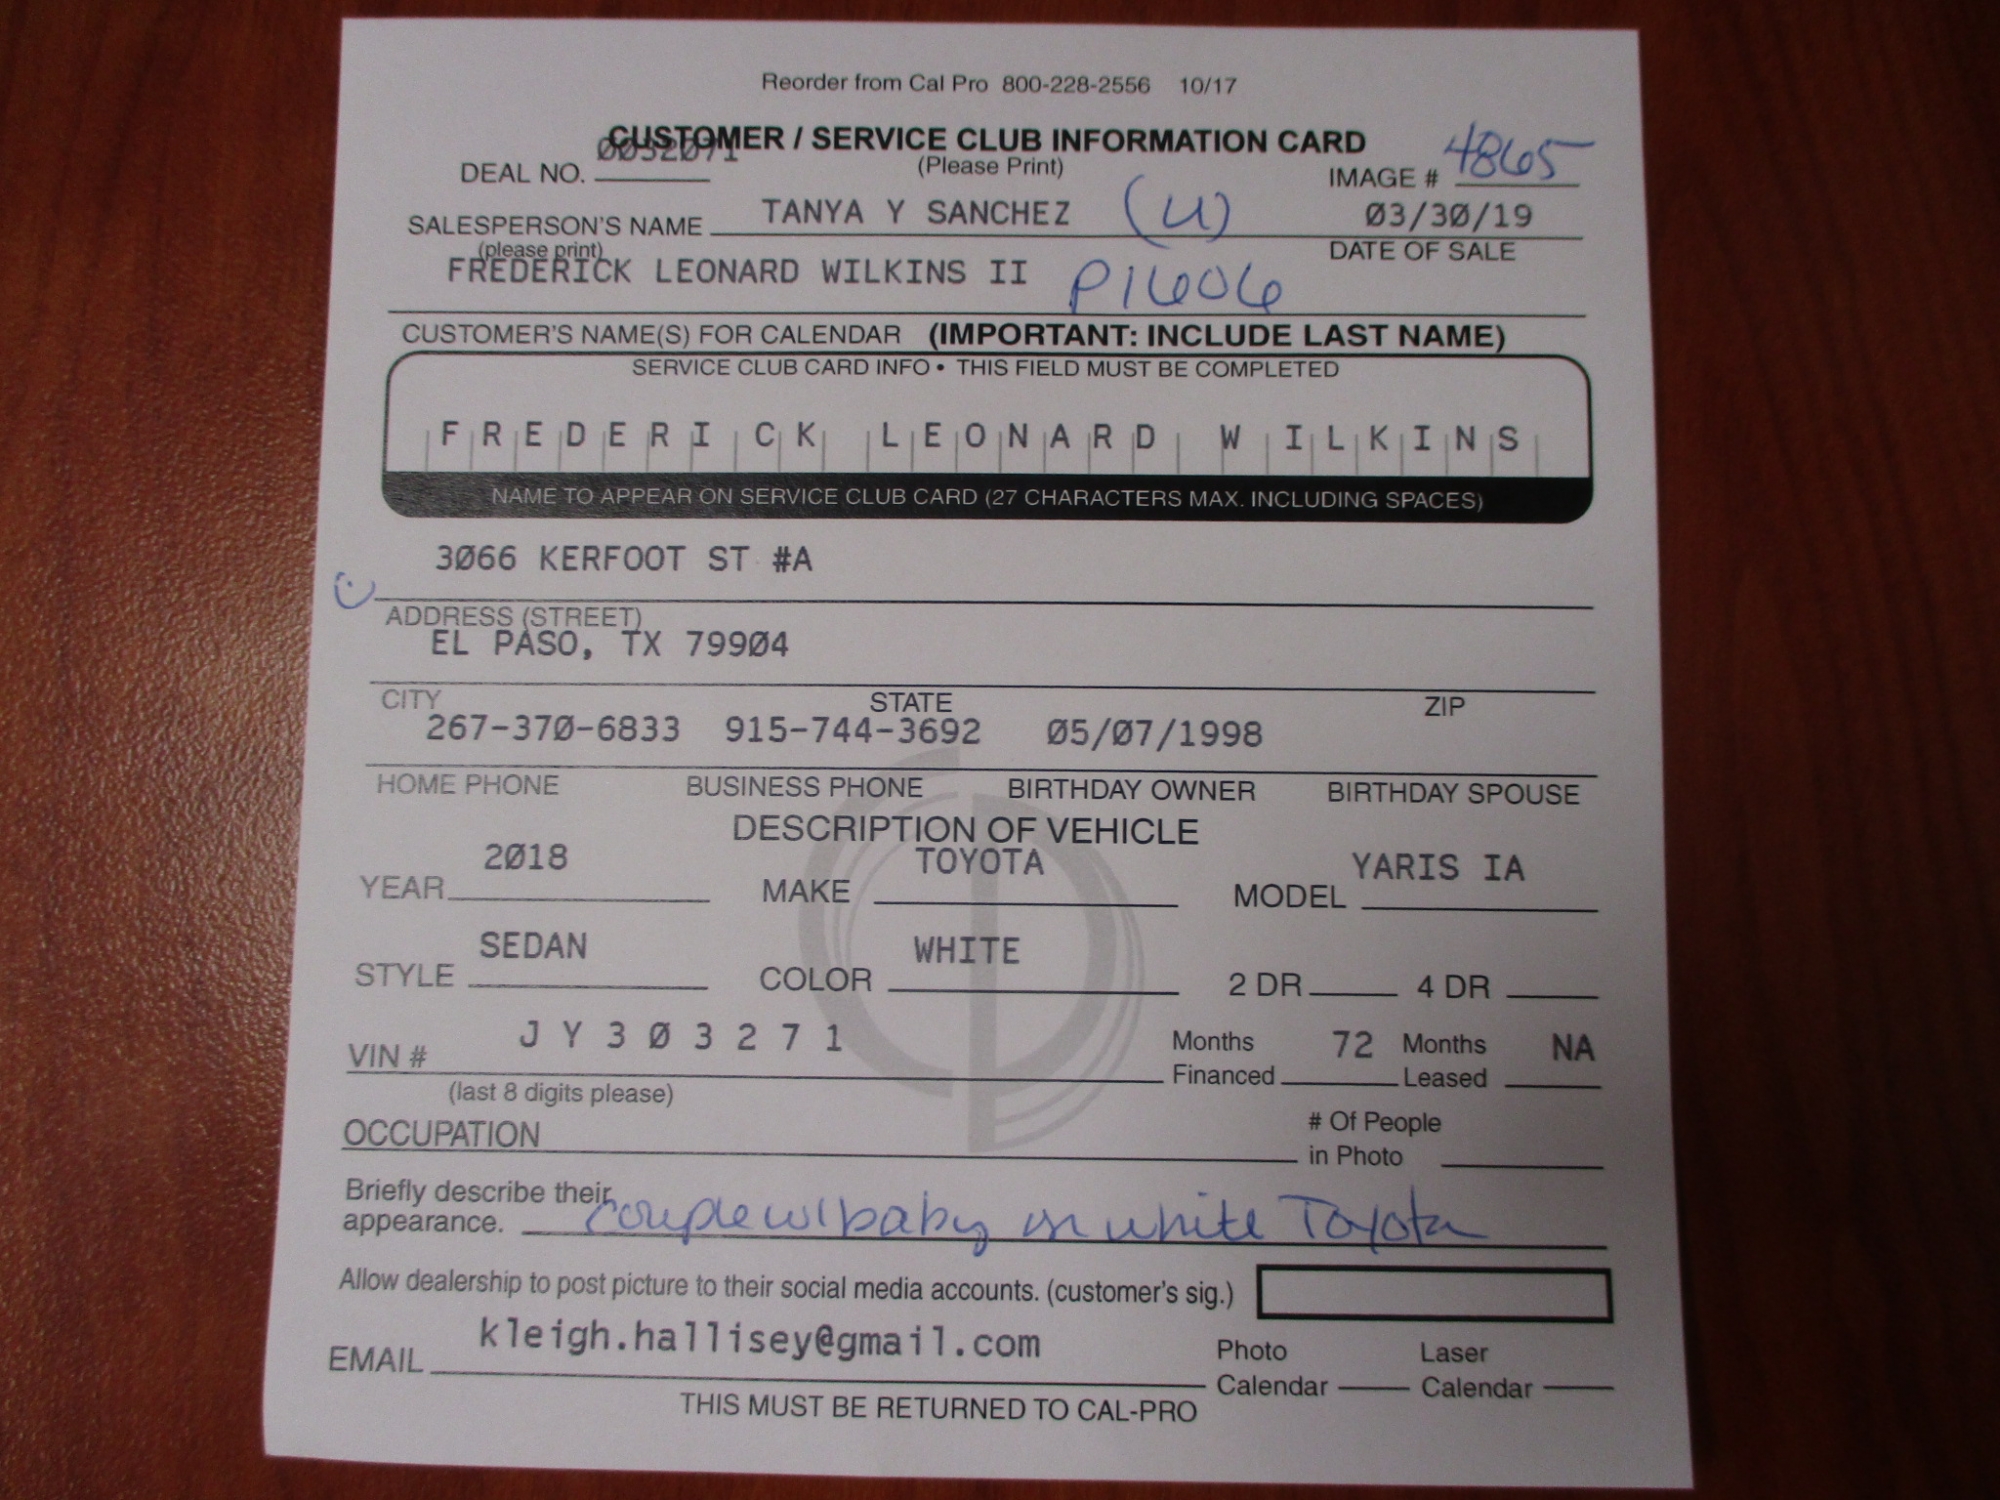 Reorder from Cal Pro 800-228-2556 10/17
CUSTOMER / SERVICE CLUB INFORMATION CARD
(Please Print)
DEAL NO. 0032071
IMAGE # 4865
SALESPERSON'S NAME TANYA Y SANCHEZ (U) 03/30/19
(please print) DATE OF SALE
FREDERICK LEONARD WILKINS II P1606
CUSTOMER'S NAME(S) FOR CALENDAR (IMPORTANT: INCLUDE LAST NAME)
SERVICE CLUB CARD INFO • THIS FIELD MUST BE COMPLETED
FREDERICK LEONARD WILKINS
NAME TO APPEAR ON SERVICE CLUB CARD (27 CHARACTERS MAX. INCLUDING SPACES)
3066 KERFOOT ST #A
ADDRESS (STREET)
EL PASO, TX 79904
CITY STATE ZIP
267-370-6833 915-744-3692 05/07/1998
HOME PHONE BUSINESS PHONE BIRTHDAY OWNER BIRTHDAY SPOUSE
DESCRIPTION OF VEHICLE
YEAR 2018 MAKE TOYOTA MODEL YARIS IA
STYLE SEDAN COLOR WHITE 2 DR 4 DR
VIN # JY303271 Months Financed 72 Months Leased NA
(last 8 digits please)
OCCUPATION # Of People in Photo
Briefly describe their
appearance. couple w/ baby on white Toyota
Allow dealership to post picture to their social media accounts. (customer's sig.)
EMAIL kleigh.hallisey@gmail.com Photo Calendar Laser Calendar
THIS MUST BE RETURNED TO CAL-PRO